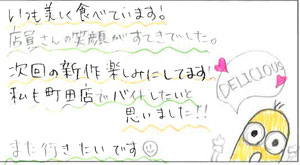 いつも美しく食べています!
店員さんの笑顔がすてきでした。
次回の新作楽しみにしてます!
私も町田店でバイトしたいと
思いました!!
また行きたいです☺
DELICIOUS